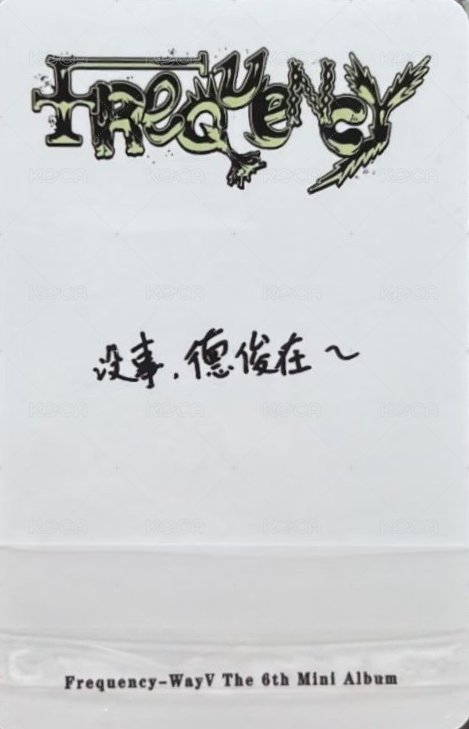 FREQUENCY
没事，德俊在～
Frequency-WayV The 6th Mini Album